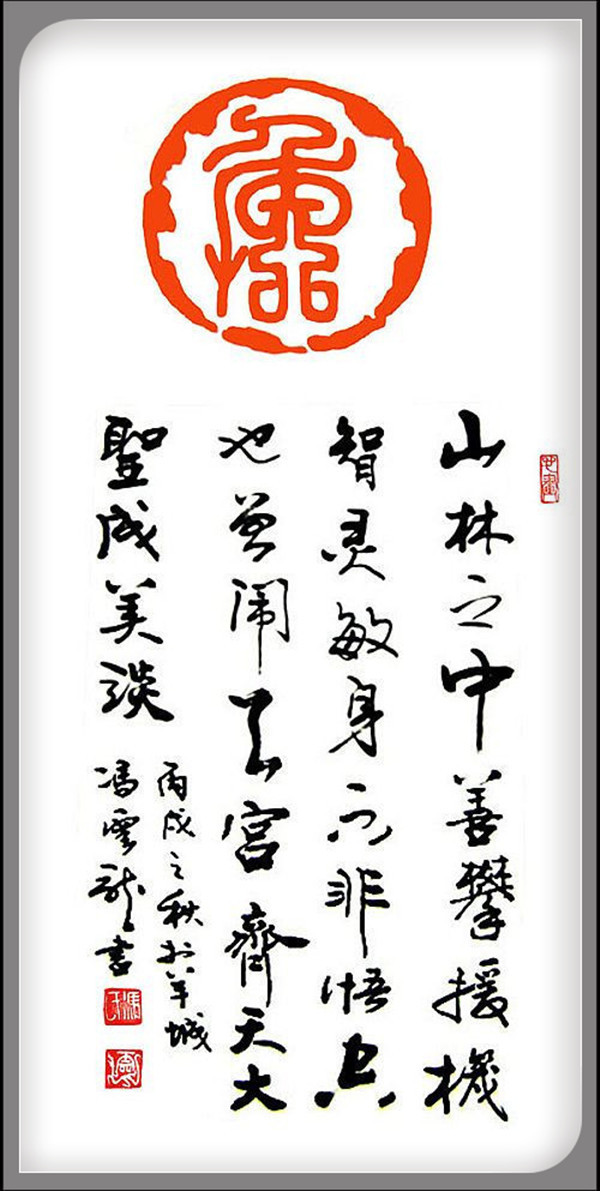 山林之中善攀援機
智灵敏身不非悟空
也曾闹天宫齊天大
聖成美谈
丙戌之秋於羊城
冯雲龍書